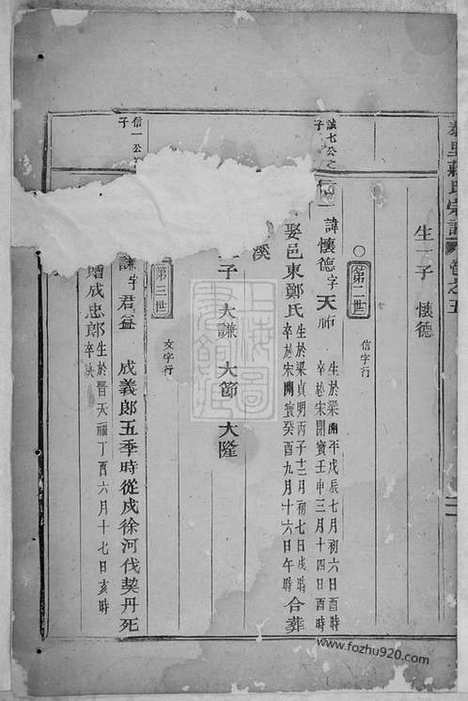 里 氏宗譜 卷之五
生一子 懷德
第二世
信字行
誠七公之
子
信一 諱懷德字天祐
生於梁開平戊辰七月初六日酉時
卒於宋開寶壬申三月十四日酉時
娶邑東鄭氏
生於梁貞明丙子十二月初七日戌時
卒於宋開寶癸酉九月十六日午時
合葬
溪
子 大謙 大節 大隆
第三世
文字行
信一公
子
謙字君益 成義郎五季時從戍徐河伐契丹死
贈成忠郎
生於晉天福丁酉六月十七日亥時
卒於
上海圖
www.fozhu920.com